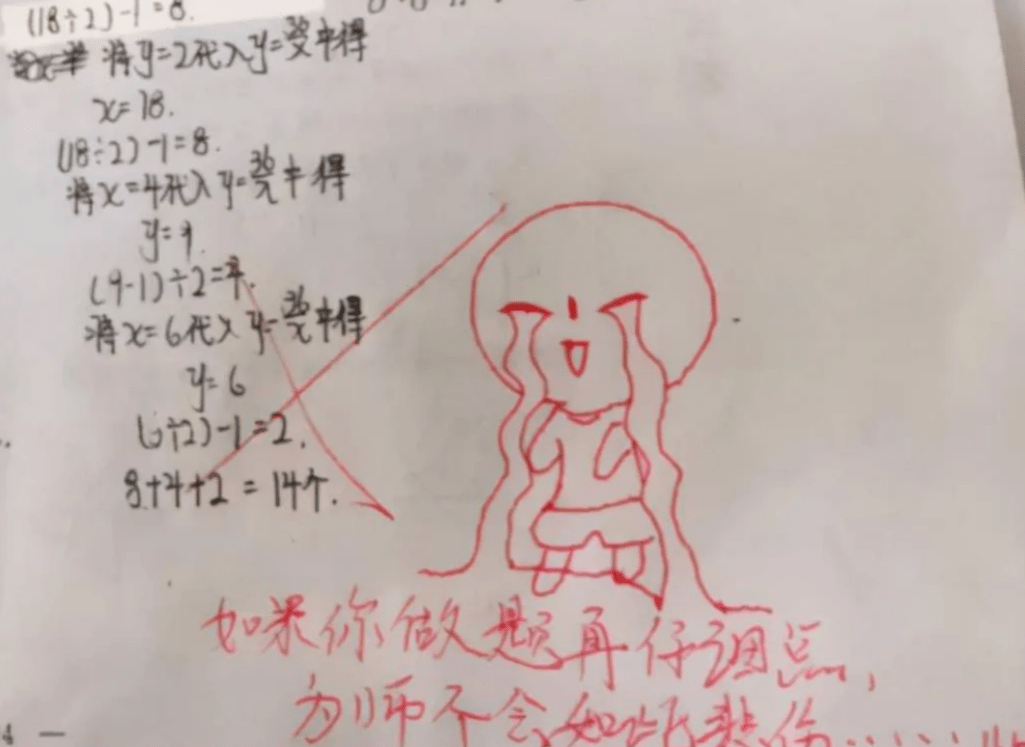 (18÷2)-1=8.
将y=2代入y=36/x中得
x=18.
(18÷2)-1=8.
将x=4代入y=36/x中得
y=9.
(9-1)÷2=4.
将x=6代入y=36/x中得
y=6
(6÷2)-1=2.
8+4+2=14个.
如果你做题再仔细点,
为师不会如此悲伤……